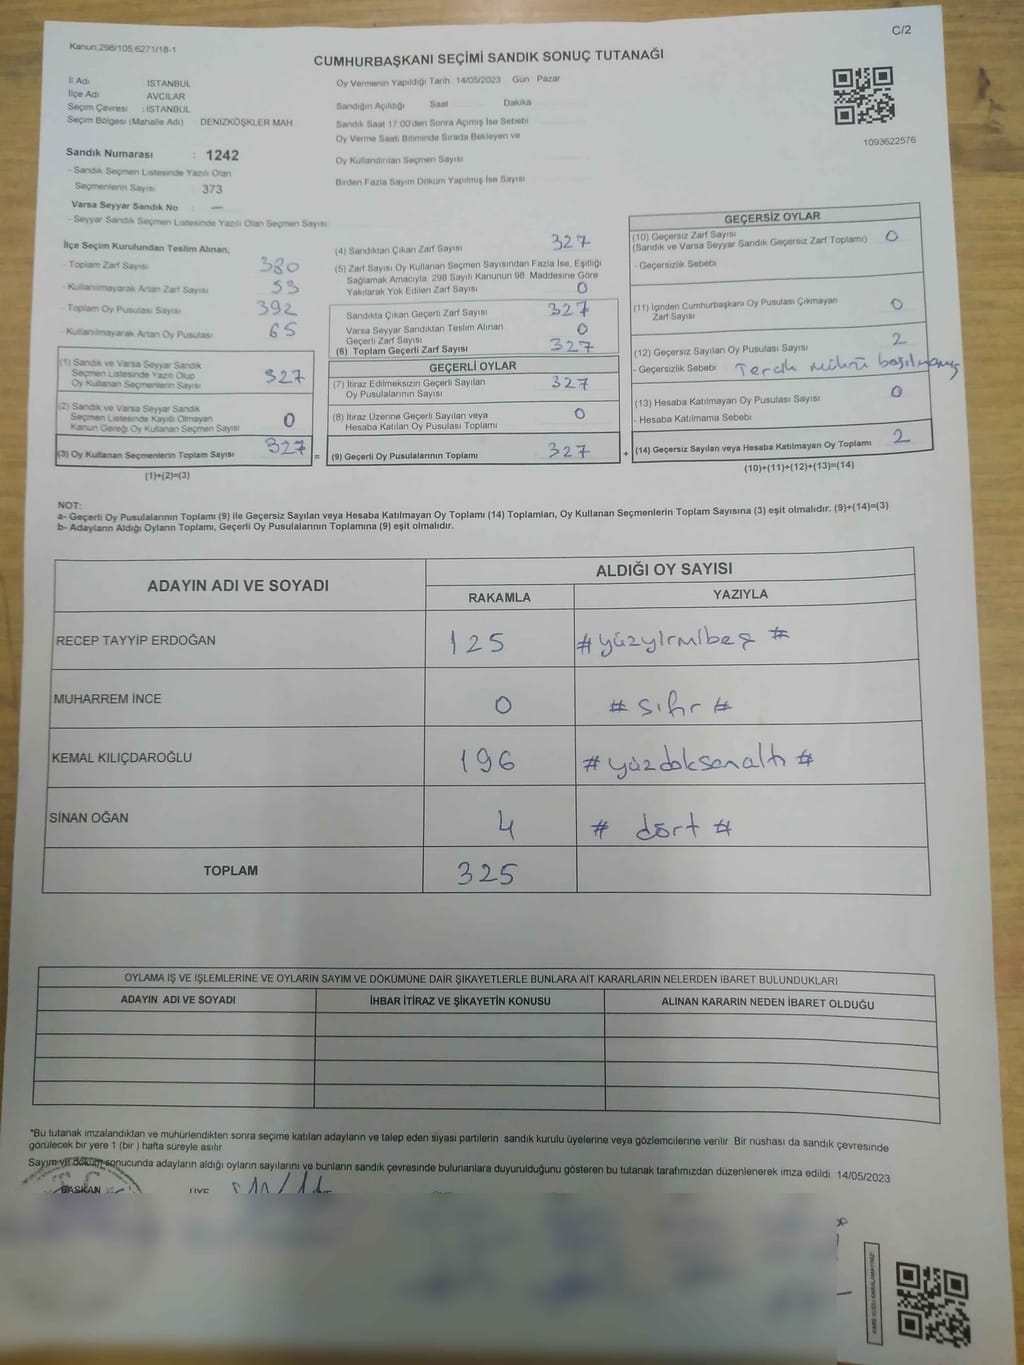 Kanun;298/105,6271/18-1
C/2
CUMHURBAŞKANI SEÇİMİ SANDIK SONUÇ TUTANAĞI
İl Adı ISTANBUL
İlçe Adı AVCILAR
Seçim Çevresi : ISTANBUL
Seçim Bölgesi (Mahalle Adı) DENİZKÖŞKLER MAH.
Oy Vermenin Yapıldığı Tarih 14/05/2023 Gün Pazar
Sandığın Açıldığı Saat Dakika
Sandık Saat 17:00'den Sonra Açımış İse Sebebi
Oy Verme Saati Bitiminde Sırada Bekleyen ve
Oy Kullandırılan Seçmen Sayısı
Birden Fazla Sayım Döküm Yapılmış İse Sayısı
1093622576
Sandık Numarası : 1242
- Sandık Seçmen Listesinde Yazılı Olan
Seçmenlerin Sayısı 373
Varsa Seyyar Sandık No : —
- Seyyar Sandık Seçmen Listesinde Yazılı Olan Seçmen Sayısı
İlçe Seçim Kurulundan Teslim Alınan;
- Toplam Zarf Sayısı 380
- Kullanılmayarak Artan Zarf Sayısı 53
- Toplam Oy Pusulası Sayısı 392
- Kullanılmayarak Artan Oy Pusulası 65
(1) Sandık ve Varsa Seyyar Sandık
Seçmen Listesinde Yazılı Olup
Oy Kullanan Seçmenlerin Sayısı 327
(2) Sandık ve Varsa Seyyar Sandık
Seçmen Listesinde Kayıtlı Olmayan
Kanun Gereği Oy Kullanan Seçmen Sayısı 0
(3) Oy Kullanan Seçmenlerin Toplam Sayısı 327
(1)+(2)=(3)
(4) Sandıktan Çıkan Zarf Sayısı 327
(5) Zarf Sayısı Oy Kullanan Seçmen Sayısından Fazla İse, Eşitliği
Sağlamak Amacıyla, 298 Sayılı Kanunun 98. Maddesine Göre
Yakılarak Yok Edilen Zarf Sayısı 0
Sandıkta Çıkan Geçerli Zarf Sayısı 327
Varsa Seyyar Sandıktan Teslim Alınan
Geçerli Zarf Sayısı 0
(6) Toplam Geçerli Zarf Sayısı 327
GEÇERLİ OYLAR
(7) İtiraz Edilmeksizin Geçerli Sayılan
Oy Pusulalarının Sayısı 327
(8) İtiraz Üzerine Geçerli Sayılan veya
Hesaba Katılan Oy Pusulası Toplamı 0
= (9) Geçerli Oy Pusulalarının Toplamı 327 +
GEÇERSİZ OYLAR
(10) Geçersiz Zarf Sayısı 0
(Sandık ve Varsa Seyyar Sandık Geçersiz Zarf Toplamı)
- Geçersizlik Sebebi
(11) İçinden Cumhurbaşkanı Oy Pusulası Çıkmayan
Zarf Sayısı 0
(12) Geçersiz Sayılan Oy Pusulası Sayısı 2
- Geçersizlik Sebebi Tercih mührü basılmamış
(13) Hesaba Katılmayan Oy Pusulası Sayısı 0
- Hesaba Katılmama Sebebi
(14) Geçersiz Sayılan veya Hesaba Katılmayan Oy Toplamı 2
(10)+(11)+(12)+(13)=(14)
NOT:
a- Geçerli Oy Pusulalarının Toplamı (9) ile Geçersiz Sayılan veya Hesaba Katılmayan Oy Toplamı (14) Toplamları, Oy Kullanan Seçmenlerin Toplam Sayısına (3) eşit olmalıdır. (9)+(14)=(3)
b- Adayların Aldığı Oyların Toplamı, Geçerli Oy Pusulalarının Toplamına (9) eşit olmalıdır.
ADAYIN ADI VE SOYADI
ALDIĞI OY SAYISI
RAKAMLA YAZIYLA
RECEP TAYYİP ERDOĞAN 125 #yüzyirmibeş #
MUHARREM İNCE 0 # sıfır #
KEMAL KILIÇDAROĞLU 196 #yüzdoksanaltı #
SİNAN OĞAN 4 # dört #
TOPLAM 325
OYLAMA İŞ VE İŞLEMLERİNE VE OYLARIN SAYIM VE DÖKÜMÜNE DAİR ŞİKAYETLERLE BUNLARA AİT KARARLARIN NELERDEN İBARET BULUNDUKLARI
ADAYIN ADI VE SOYADI İHBAR İTİRAZ VE ŞİKAYETİN KONUSU ALINAN KARARIN NEDEN İBARET OLDUĞU
*Bu tutanak imzalandıktan ve mühürlendikten sonra seçime katılan adayların ve talep eden siyasi partilerin sandık kurulu üyelerine veya gözlemcilerine verilir. Bir nüshası da sandık çevresinde
görülecek bir yere 1 (bir ) hafta süreyle asılır.
Sayım ve döküm sonucunda adayların aldığı oyların sayılarını ve bunların sandık çevresinde bulunanlara duyurulduğunu gösteren bu tutanak tarafımızdan düzenlenerek imza edildi. 14/05/2023
BAŞKAN ÜYE